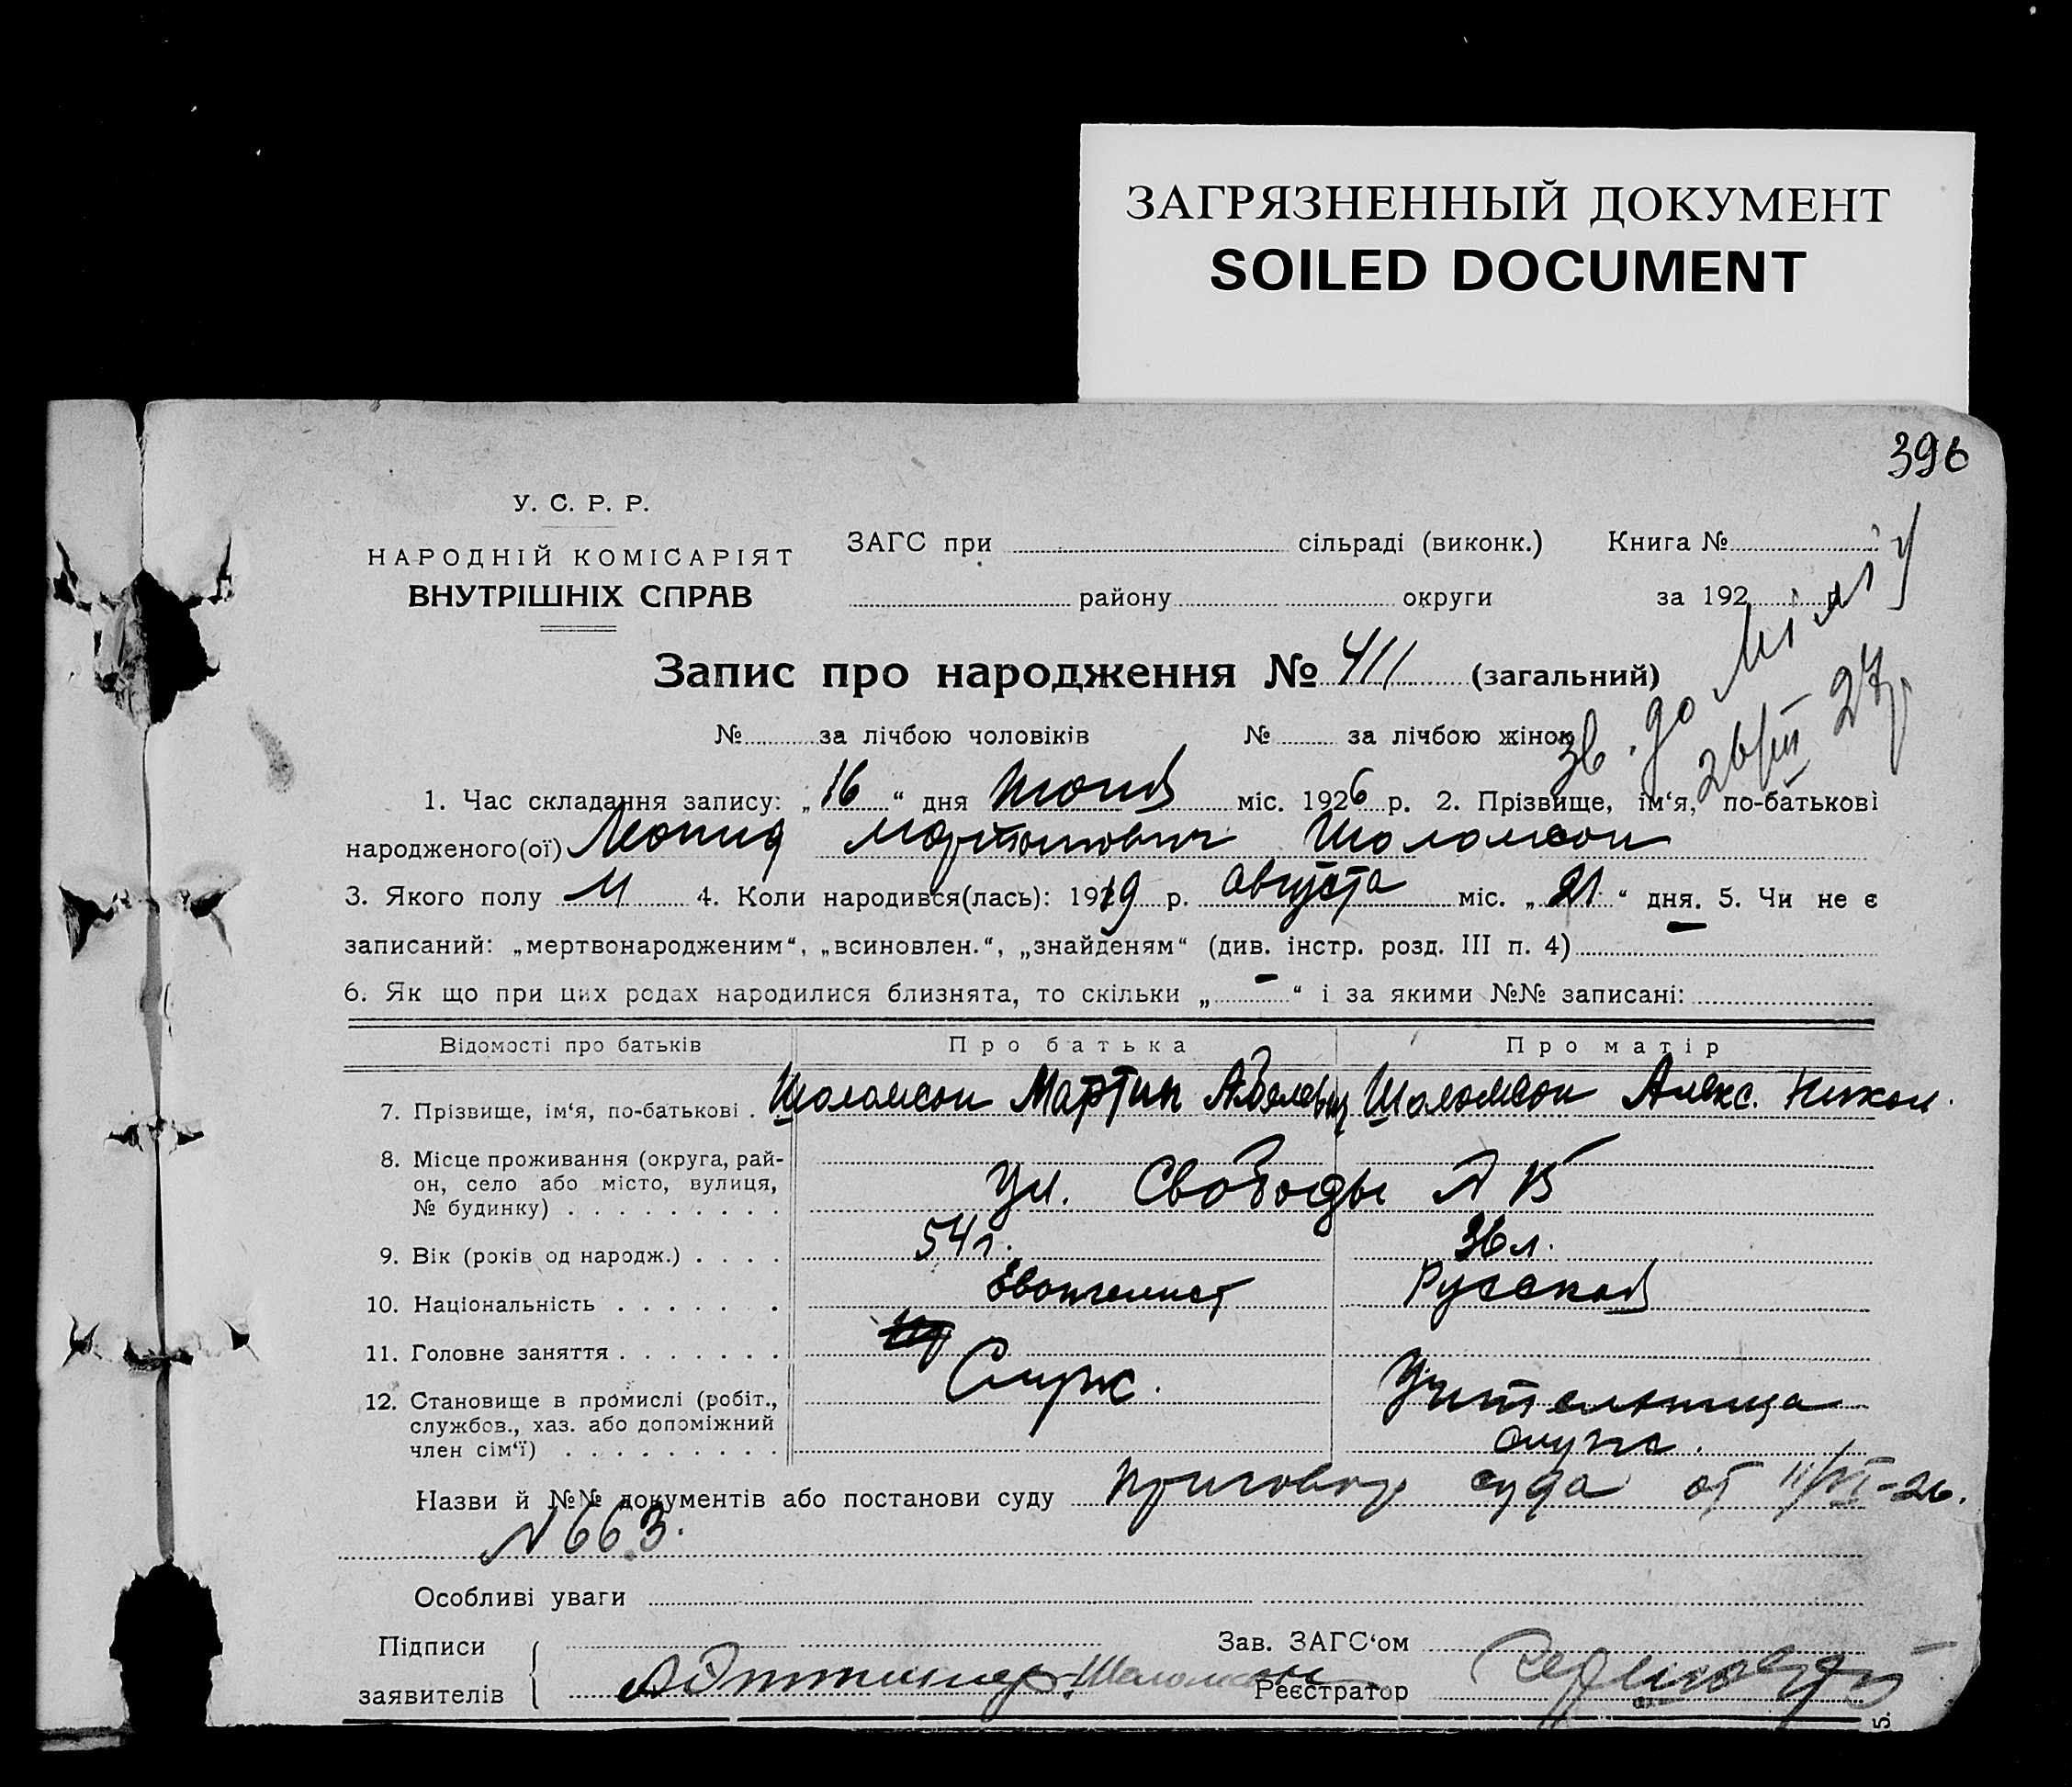 ЗАГРЯЗНЕННЫЙ ДОКУМЕНТ
SOILED DOCUMENT
396
У. С. Р. Р.
НАРОДНІЙ КОМІСАРІЯТ
ВНУТРІШНІХ СПРАВ
ЗАГС при сільраді (виконк.) Книга №
району округи за 192 р.
Запис про народження № 411 (загальний)
№ за лічбою чоловіків № за лічбою жінок
26/III 27р
1. Час складання запису: „16“ дня Июня міс. 1926 р. 2. Прізвище, ім‘я, по-батькові
народженого(ої) Леонид Мартинович Шоломсон
3. Якого полу М 4. Коли народився(лась): 1919 р. Августа міс. „21“ дня. 5. Чи не є
записаний: „мертвонародженим“, „всиновлен.“, „знайденям“ (див. інстр. розд. III п. 4) —
6. Як що при цих родах народилися близнята, то скільки „—“ і за якими №№ записані:
Відомості про батьків Про батька Про матір
7. Прізвище, ім‘я, по-батькові . Шоломсон Мартин Шоломсон Алекс. Никол.
8. Місце проживання (округа, рай-
он, село або місто, вулиця,
№ будинку) . . . . . . . . . Ул. Свободы
9. Вік (років од народж.) . . . . 54 г. 36 л.
10. Національність . . . . . . . Евангелист Русская
11. Головне заняття . . . . . . .
12. Становище в промислі (робіт.,
службов., хаз. або допоміжний
член сім‘ї) . . . . . . . . . Служ. Учительница
служ.
Назви й №№ документів або постанови суду Приговор суда от 11/VI-26.
N 663.
Особливі уваги
Підписи
заявителів
Шоломсон
Зав. ЗАГС‘ом
Реєстратор
5.